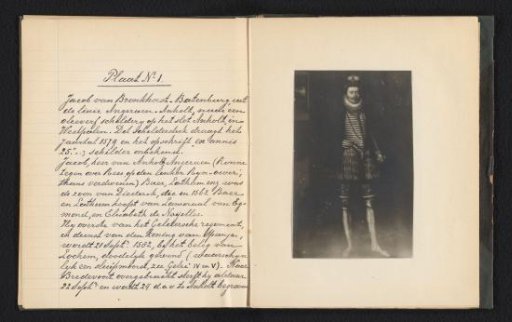 Plaat No 1.
Jacob van Bronkhorst-Batenburg uit
de linie Angeroien-Anholt, naar een
olieverf schilderij op het slot Anholt in
Westfalen. Het schilderstuk draagt het
jaartal 1579 en het opschrift,
25."; schilder onbekend.
Jacob, heer van Anholt, Angeroien
tegen over Rees op den linker Rijn-oever;
thans verdwenen) Baer, Lathum enz was
de zoon van Diederik, die in 1562 Baer
en Lathum koopt van Lamoraal van Eg-
mond, en Elisabeth de Noyelles.
Hij overste van het Geldersche regiment,
in dienst van den Koning van Spanje,
wordt 21 Septr 1582, bij het beleg van
Lochem, doodelijk gewond (waarschijn-
lijk een sluipmoord, zie Gelre IV en V). Naar
Bredevoort overgebracht sterft hij aldaar
22 Septr en wordt 29 d.a.v. te Anholt begraven